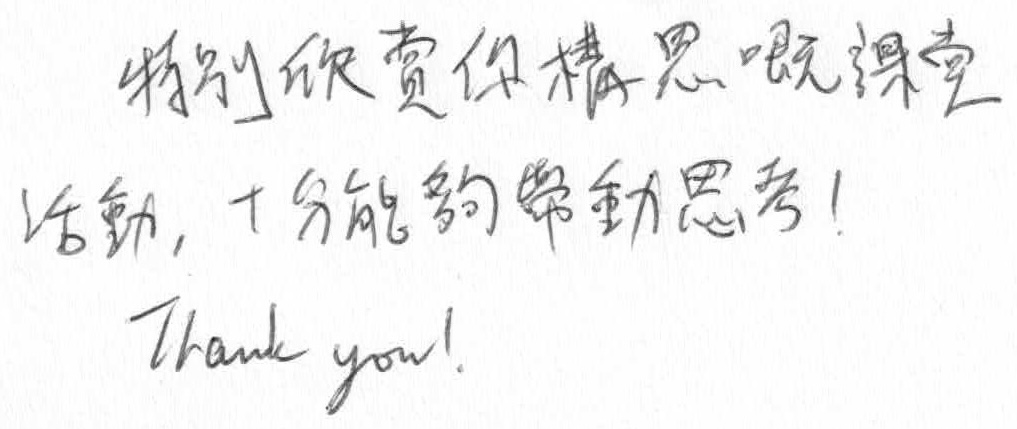 特別欣賞你構思嘅課堂
活動，十分能夠帶動思考！
Thank you!